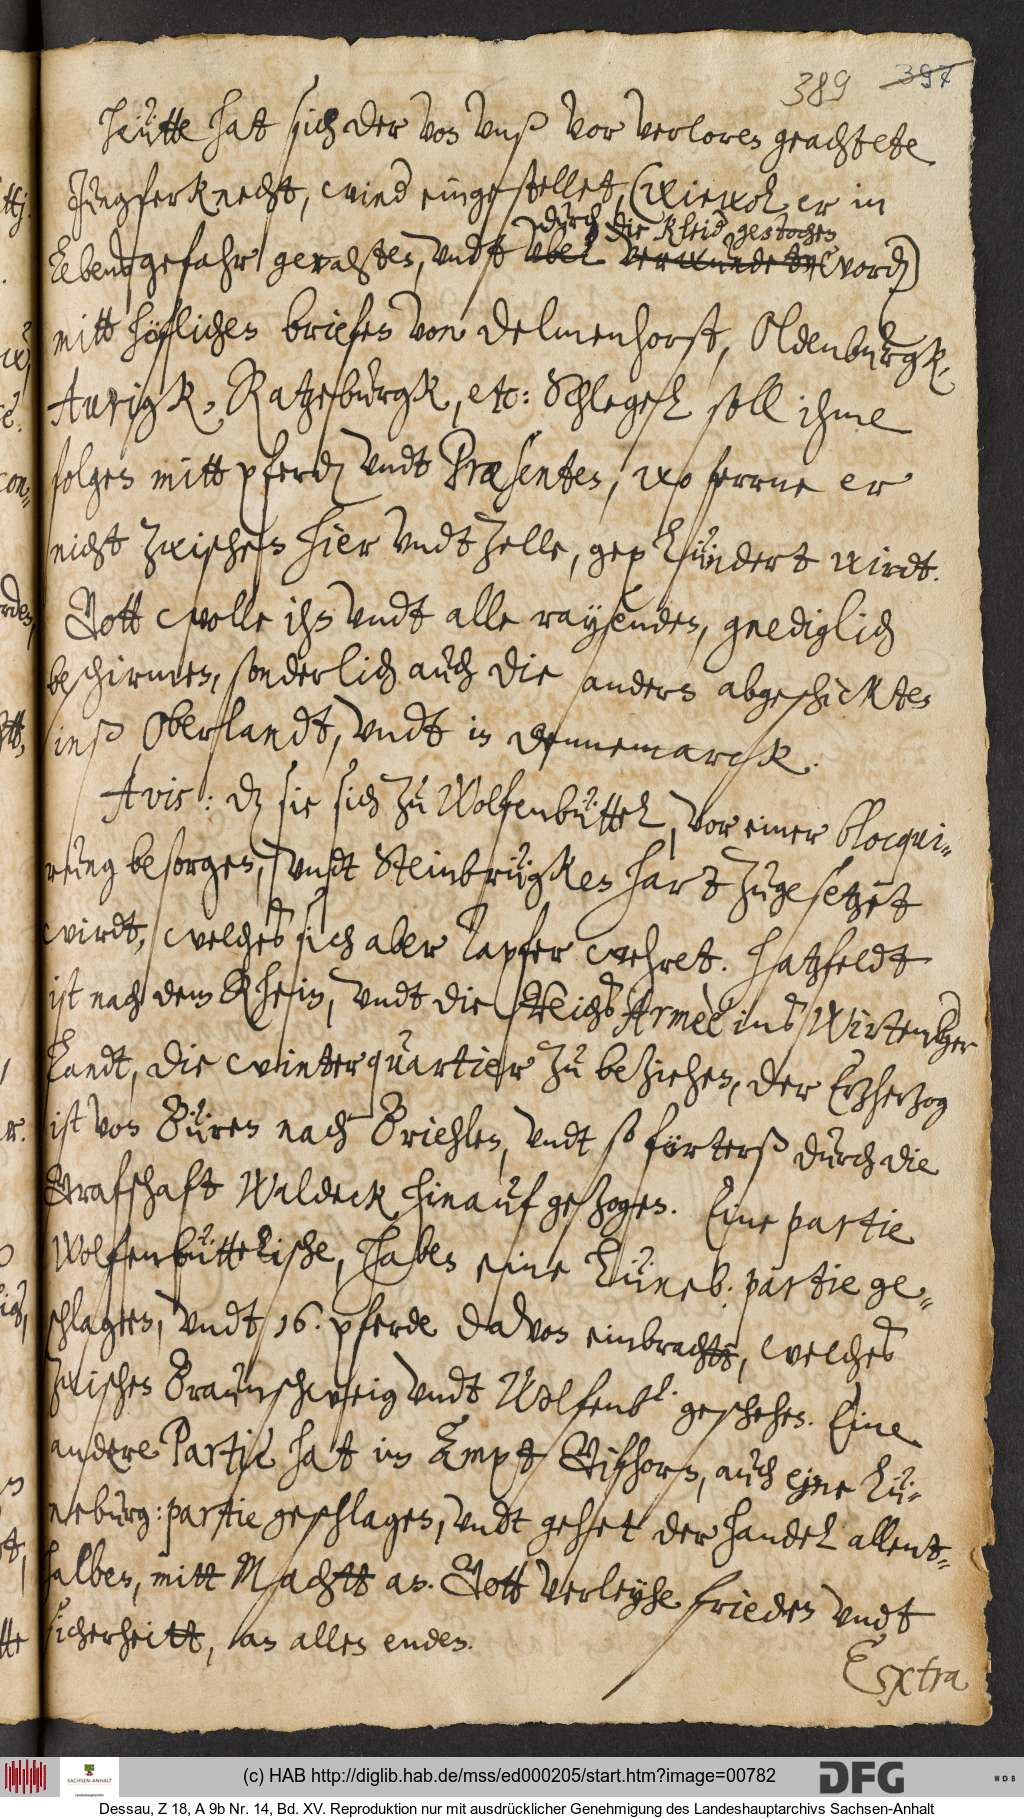 389 397
Heütte hat sich der von vnß vor verloren geachtete
Jungferknecht, wied eingestellet, (wiewol er in
durch die Kleid gestochen
Lebensgefahr gerahten, vndt übel verwundet word)
mitt höflichen briefen von Delmenhorst, Oldenburgk,
Aurigk, Ratzeburgk, etc: Schlegel soll ihme
folgen mitt pferdn vndt Præsenten, wo ferrne er
nicht zwischen hier vndt Zelle, geplündert wirdt.
Gott wolle ihn vndt alle raysenden, gnediglich
beschirmen, sonderlich auch die andern abgeschickten
inß Oberlandt, vndt in Dennemarck.
Avis: dz sie sich zu Wolfenbüttel, vor einer blocqui-
reung besorgen, vndt Steinbrügken hart zugesetzet
wirdt, welches sich aber Tapfer wehret. Hatzfeldt
ist nach dem Rhein, vndt die Reichs Armèe ins Wirtemberger
Landt, die winterquartier zu beziehen, der Ertzhertzog
ist von Büren nach Briehlen, vndt so förterß durch die
Grafschaft Waldeck hinauf gezogen. Eine partie
Wolfenbüttelische, haben eine Lüneb. partie ge-
schlagen, vndt 16. pferde davon einbracht, welches
zwischen Braunschweig vndt Wolfenb.l geschehen. Eine
andere Partie hat im Ampt Gifhorn, auch eine Lü-
neburg: partie geschlagen, vndt gehet der handel allent-
halben, mitt Machtt an. Gott verleyhe frieden vndt
sicherheitt, an allen enden.
Extra
(c) HAB http://diglib.hab.de/mss/ed000205/start.htm?image=00782
SACHSEN-ANHALT
DFG
W D B
Dessau, Z 18, A 9b Nr. 14, Bd. XV. Reproduktion nur mit ausdrücklicher Genehmigung des Landeshauptarchivs Sachsen-Anhalt